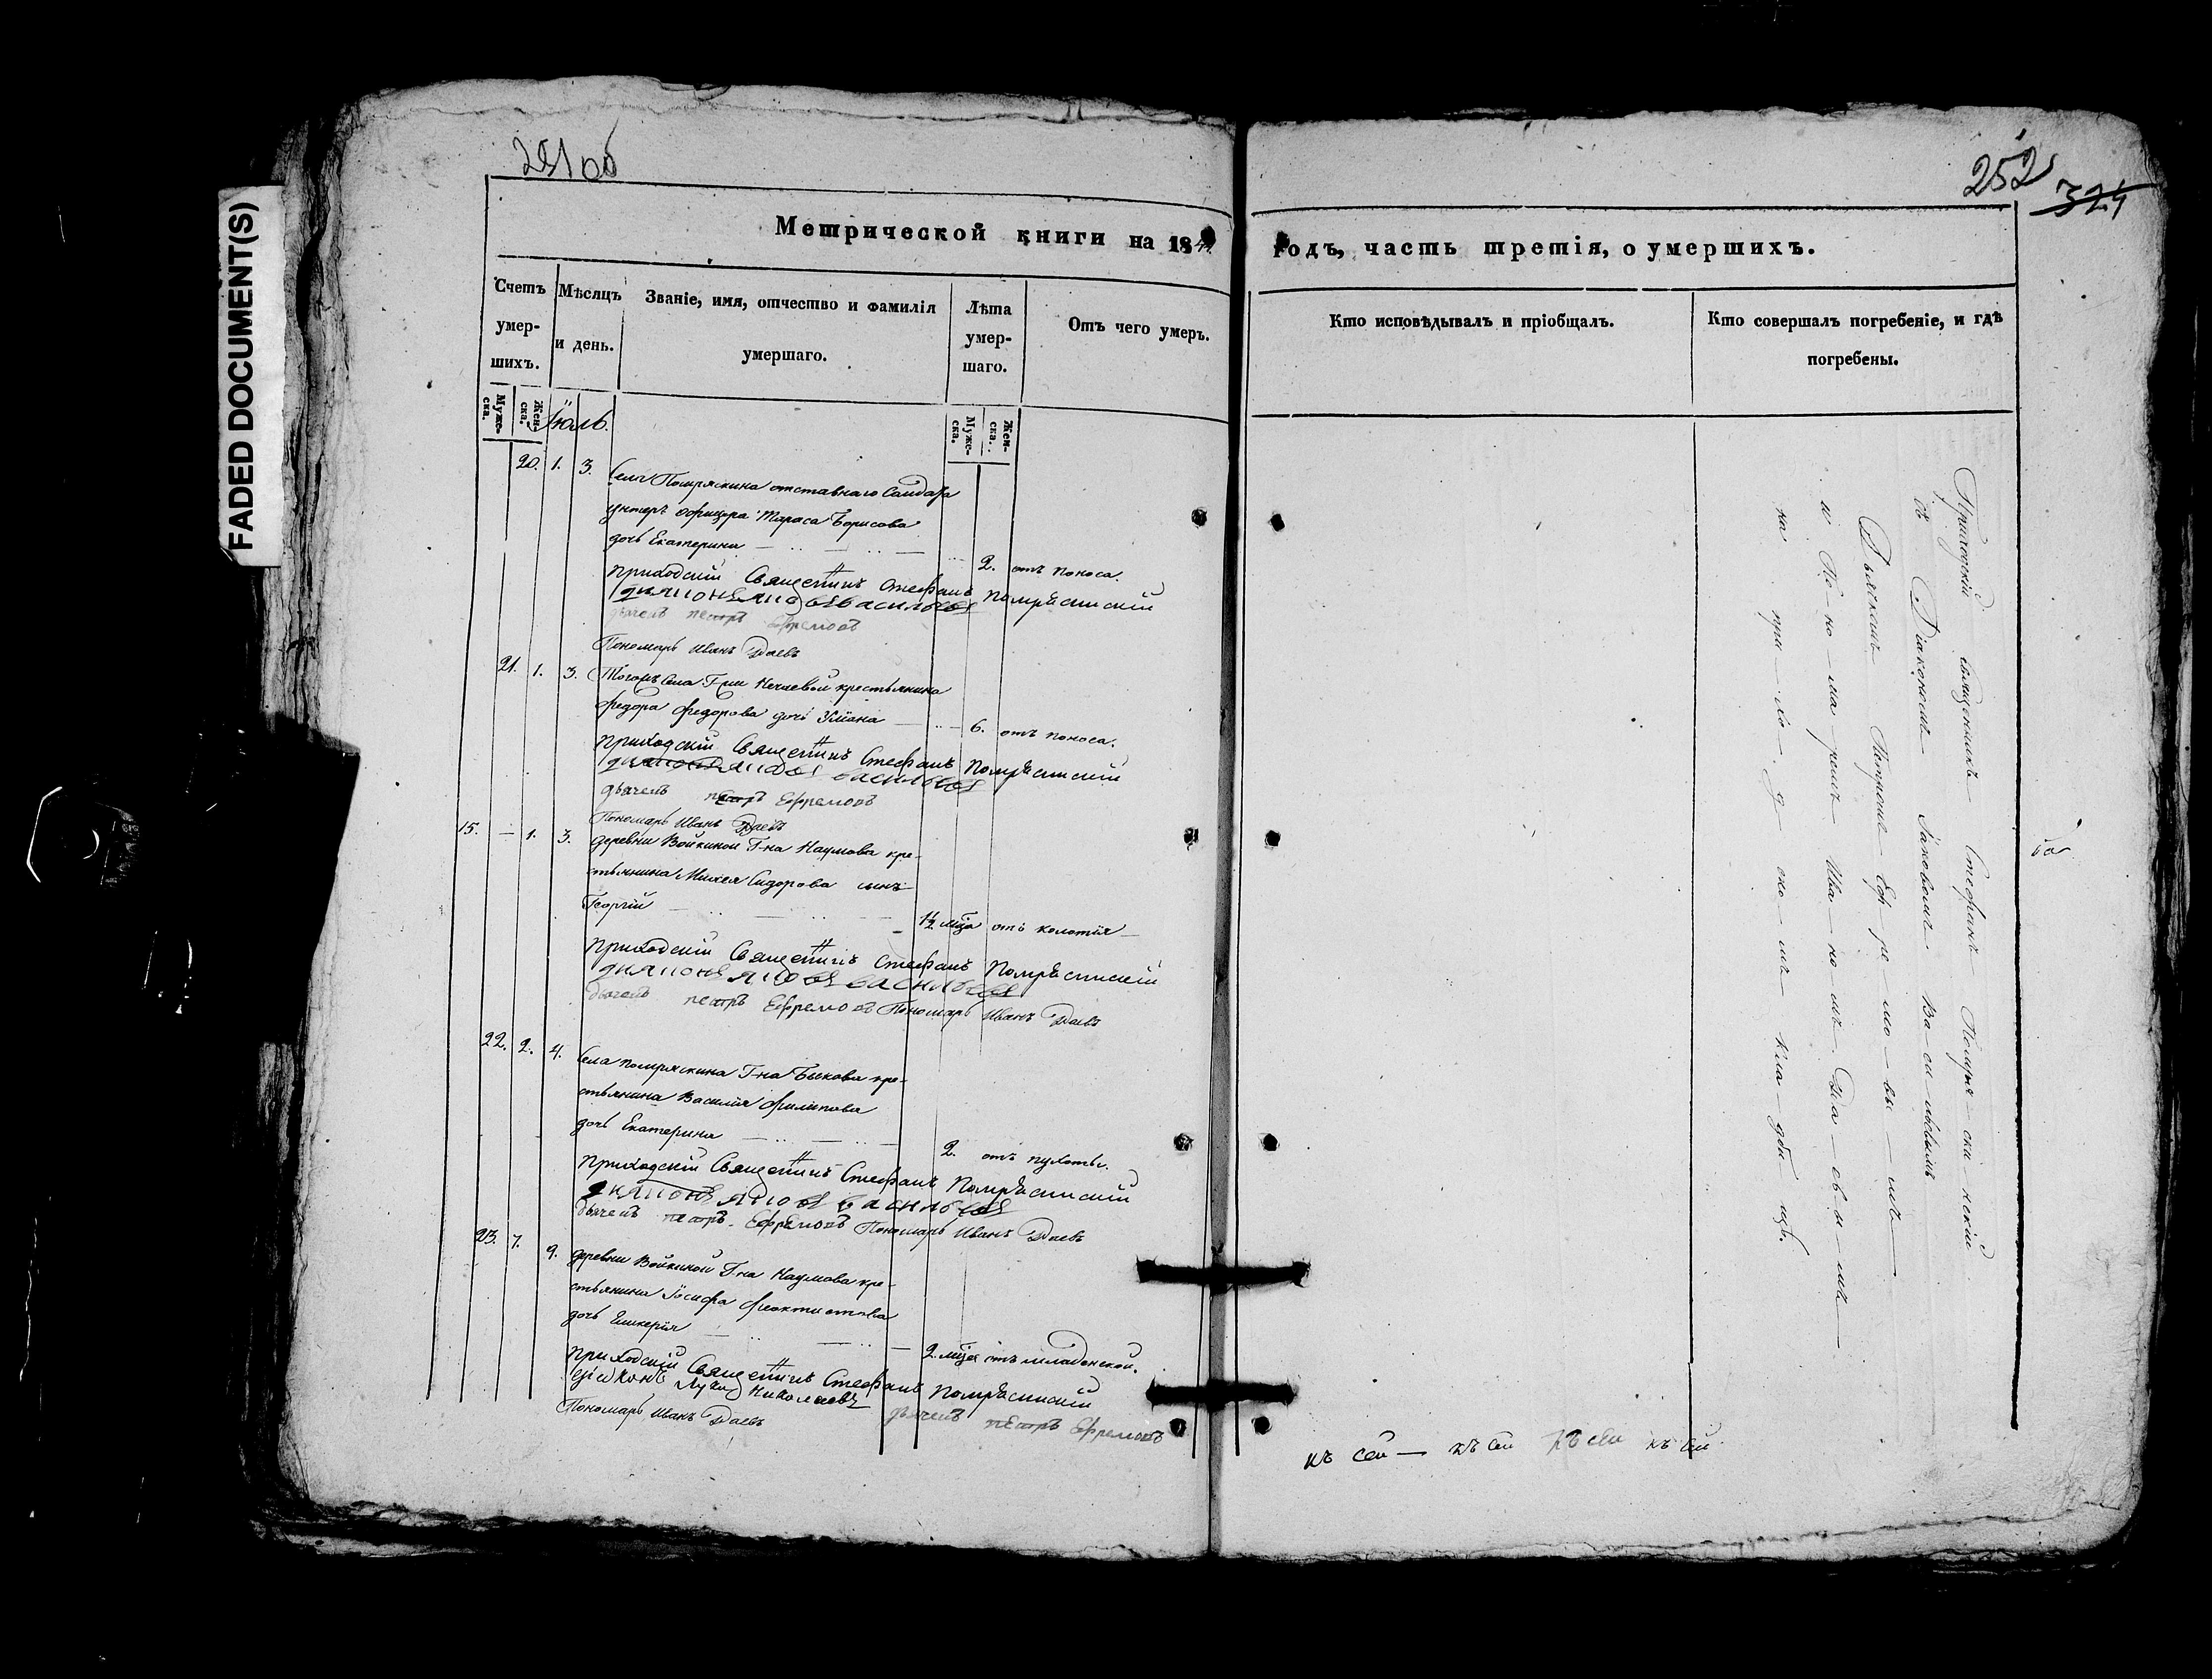 FADED DOCUMENT(S)
251 об
252
324
Метрической книги на 184
годъ, часть третія, о умершихъ.
Счетъ умер-шихъ.
Мѣсяцъ и день.
Званіе, имя, отчество и фамилія умершаго.
Лѣта умер-шаго.
Отъ чего умеръ.
Кто исповѣдывалъ и пріобщалъ.
Кто совершалъ погребеніе, и гдѣ погребены.
Муже-ска.
Жен-ска.
Муже-ска.
Жен-ска.
Іюль.
20. 1. 3. Села Помряскина отставнаго Солдата
унтеръ офицера Тараса Борисова
дочь Екатерина 2. отъ поноса.
приходскій Священникъ Стефанъ Помряскинскій
диаконъ Яковъ Васильевъ
дьячекъ петръ Ефремовъ
Пономарь Иванъ Даевъ
21. 1. 3. Тогожъ села Г-жи Нечаевой крестьянина
Федора Федорова дочь Уліана 6. отъ поноса.
приходскій Священникъ Стефанъ Помряскинскій
диаконъ Яковъ Васильевъ
дьячекъ петръ Ефремовъ
Пономарь Иванъ Даевъ
15. — 1. 3. деревни Войкиной Г-на Наумова кре-
стьянина Михея Сидорова сынъ
Георгій 1½ мѣца отъ колотія
приходскій Священникъ Стефанъ Помряскинскій
диаконъ Яковъ Васильевъ
дьячекъ петръ Ефремовъ Пономарь Иванъ Даевъ
22. 2. 4. Села Помряскина Г-на Быкова кре-
стьянина Василія Филипова
дочь Екатерина 2. отъ пухоты.
приходскій Священникъ Стефанъ Помряскинскій
диаконъ Яковъ Васильевъ
дьячекъ петръ Ефремовъ Пономарь Иванъ Даевъ
23. 7. 9. деревни Войкиной Г-на Наумова кре-
стьянина Іосифа Феоктистова
дочь Гликерія 2 мѣца отъ младенской.
приходскій Священникъ Стефанъ Помряскинскій
діаконъ Николаевъ
дьячекъ петръ Ефремовъ
Пономарь Иванъ Даевъ
Приходскій священникъ Стефанъ Помря-скинскій
съ Діакономъ Іаковомъ Ва-си-льевымъ
Дьячкомъ Петромъ Еф-ре-мо-вы-мъ
и По-но-ма-ремъ Ива-но-мъ Да-евы-мъ
на при-хо-д-ско-мъ кла-дби-щѣ.
къ сей — къ сей къ сей къ сей